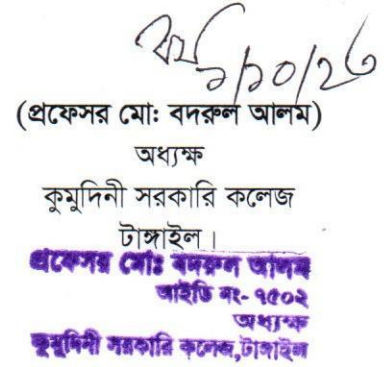 ১/১০/২৩
(প্রফেসর মো: বদরুল আলম)
অধ্যক্ষ
কুমুদিনী সরকারি কলেজ
টাঙ্গাইল।
প্রফেসর মোঃ বদরুল আলম
আইডি নং- ৭৫০২
অধ্যক্ষ
কুমুদিনী সরকারি কলেজ,টাঙ্গাইল